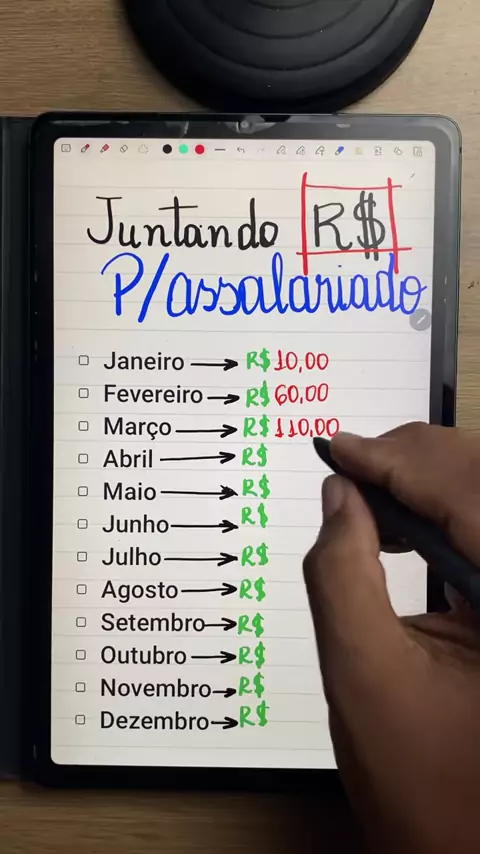 Juntando R$
P/assalariado
Janeiro → R$ 10,00
Fevereiro → R$ 60,00
Março → R$ 110,00
Abril → R$
Maio → R$
Junho → R$
Julho → R$
Agosto → R$
Setembro → R$
Outubro → R$
Novembro → R$
Dezembro → R$